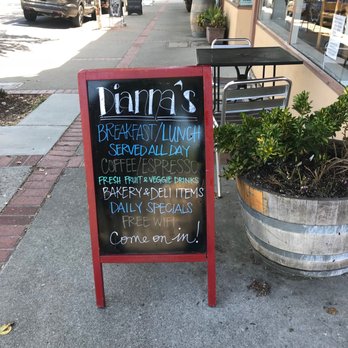 Dianna's
BREAKFAST/LUNCH
SERVED ALL DAY
COFFEE/ESPRESSO
FRESH FRUIT & VEGGIE DRINKS
BAKERY & DELI ITEMS
DAILY SPECIALS
FREE WIFI
Come on in!